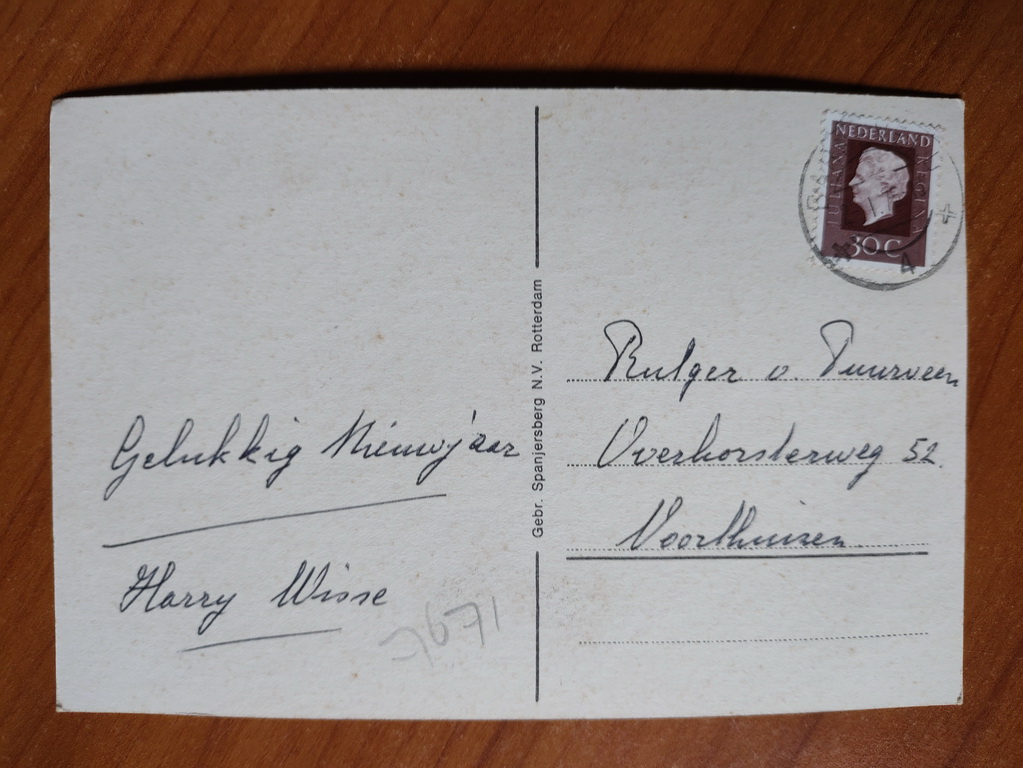 Gelukkig Nieuwjaar
Harry Wisse
7671
Gebr. Spanjersberg N.V. Rotterdam
NEDERLAND
JULIANA REGINA
30 C
4
Rutger v. Puurveen
Overhorsterweg 52.
Voorthuizen.